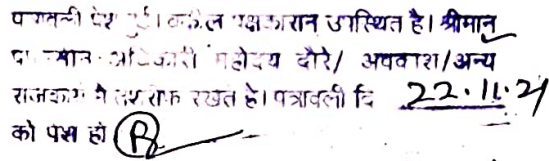 पत्रावली पेश हुई। वकील पक्षकारान उपस्थित है। श्रीमान्
अधिकारी महोदय दौरे/ अवकाश/अन्य
राजकार्य में तशरीफ रखते है। पत्रावली दि 22.11.21
को पेश हो